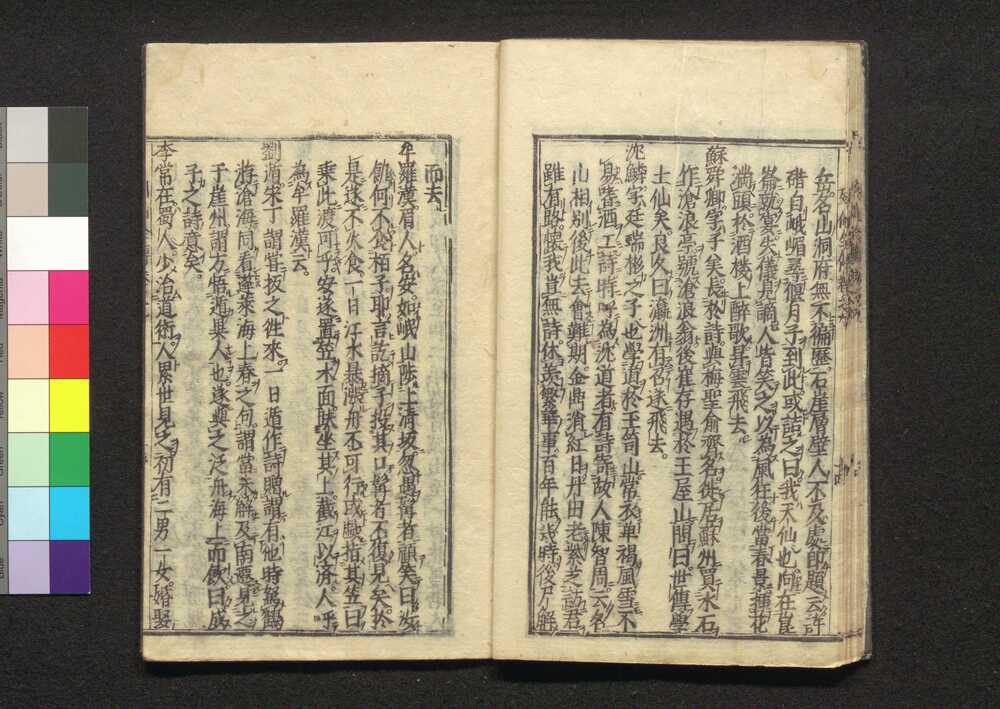 岳名山洞府無不徧歷石崖層壁人不及處即題云許
碏自峨嵋尋偃月子到此或詰之曰我天仙也向在崑
崙就宴失儀見謫人皆笑之以為風狂後當春景插花
滿頭於酒樓上醉歌昇雲飛去。
蘇舜卿字子美長於詩與梅聖俞齊名徙居蘇州買水石
作滄浪亭號滄浪翁後崔存遇於王屋山間曰世傳學
士仙矣良久曰瀛洲有召遂飛去。
沈鱗字廷瑞彬之子也學道於玉笥山常衣單褐風雪不
易嗜酒工詩時呼為沈道者有詩寄故人陳智周云名
山相別後此去會難期金鼎消紅日丹田老紫芝訪君
雖有路懷我豈無詩休羨繁華事百年能幾時後尸解
而去
牟羅漢眉人名安如岷山陟上清坂忽遇髯者顧笑曰汝
飢何不食栢子耶言訖摘子投其口髯者不復見矣於
是遂不火食一日江水暴漲舟不可行或戲指其笠曰
乘此渡可乎安遂置笠水面趺坐其上截江以濟人呼
為牟羅漢云
劉遁宋丁謂嘗扳之徃來一日遁作詩贈謂有他時駕鶴
遊滄海同看蓬萊海上春之句謂當未解及南遷身之
于崖州謂方悟遁異人也遂與之泛舟海上而飲曰成
子之詩意矣。
李常在蜀人少治道術人累世見之初有二男一女婚娶